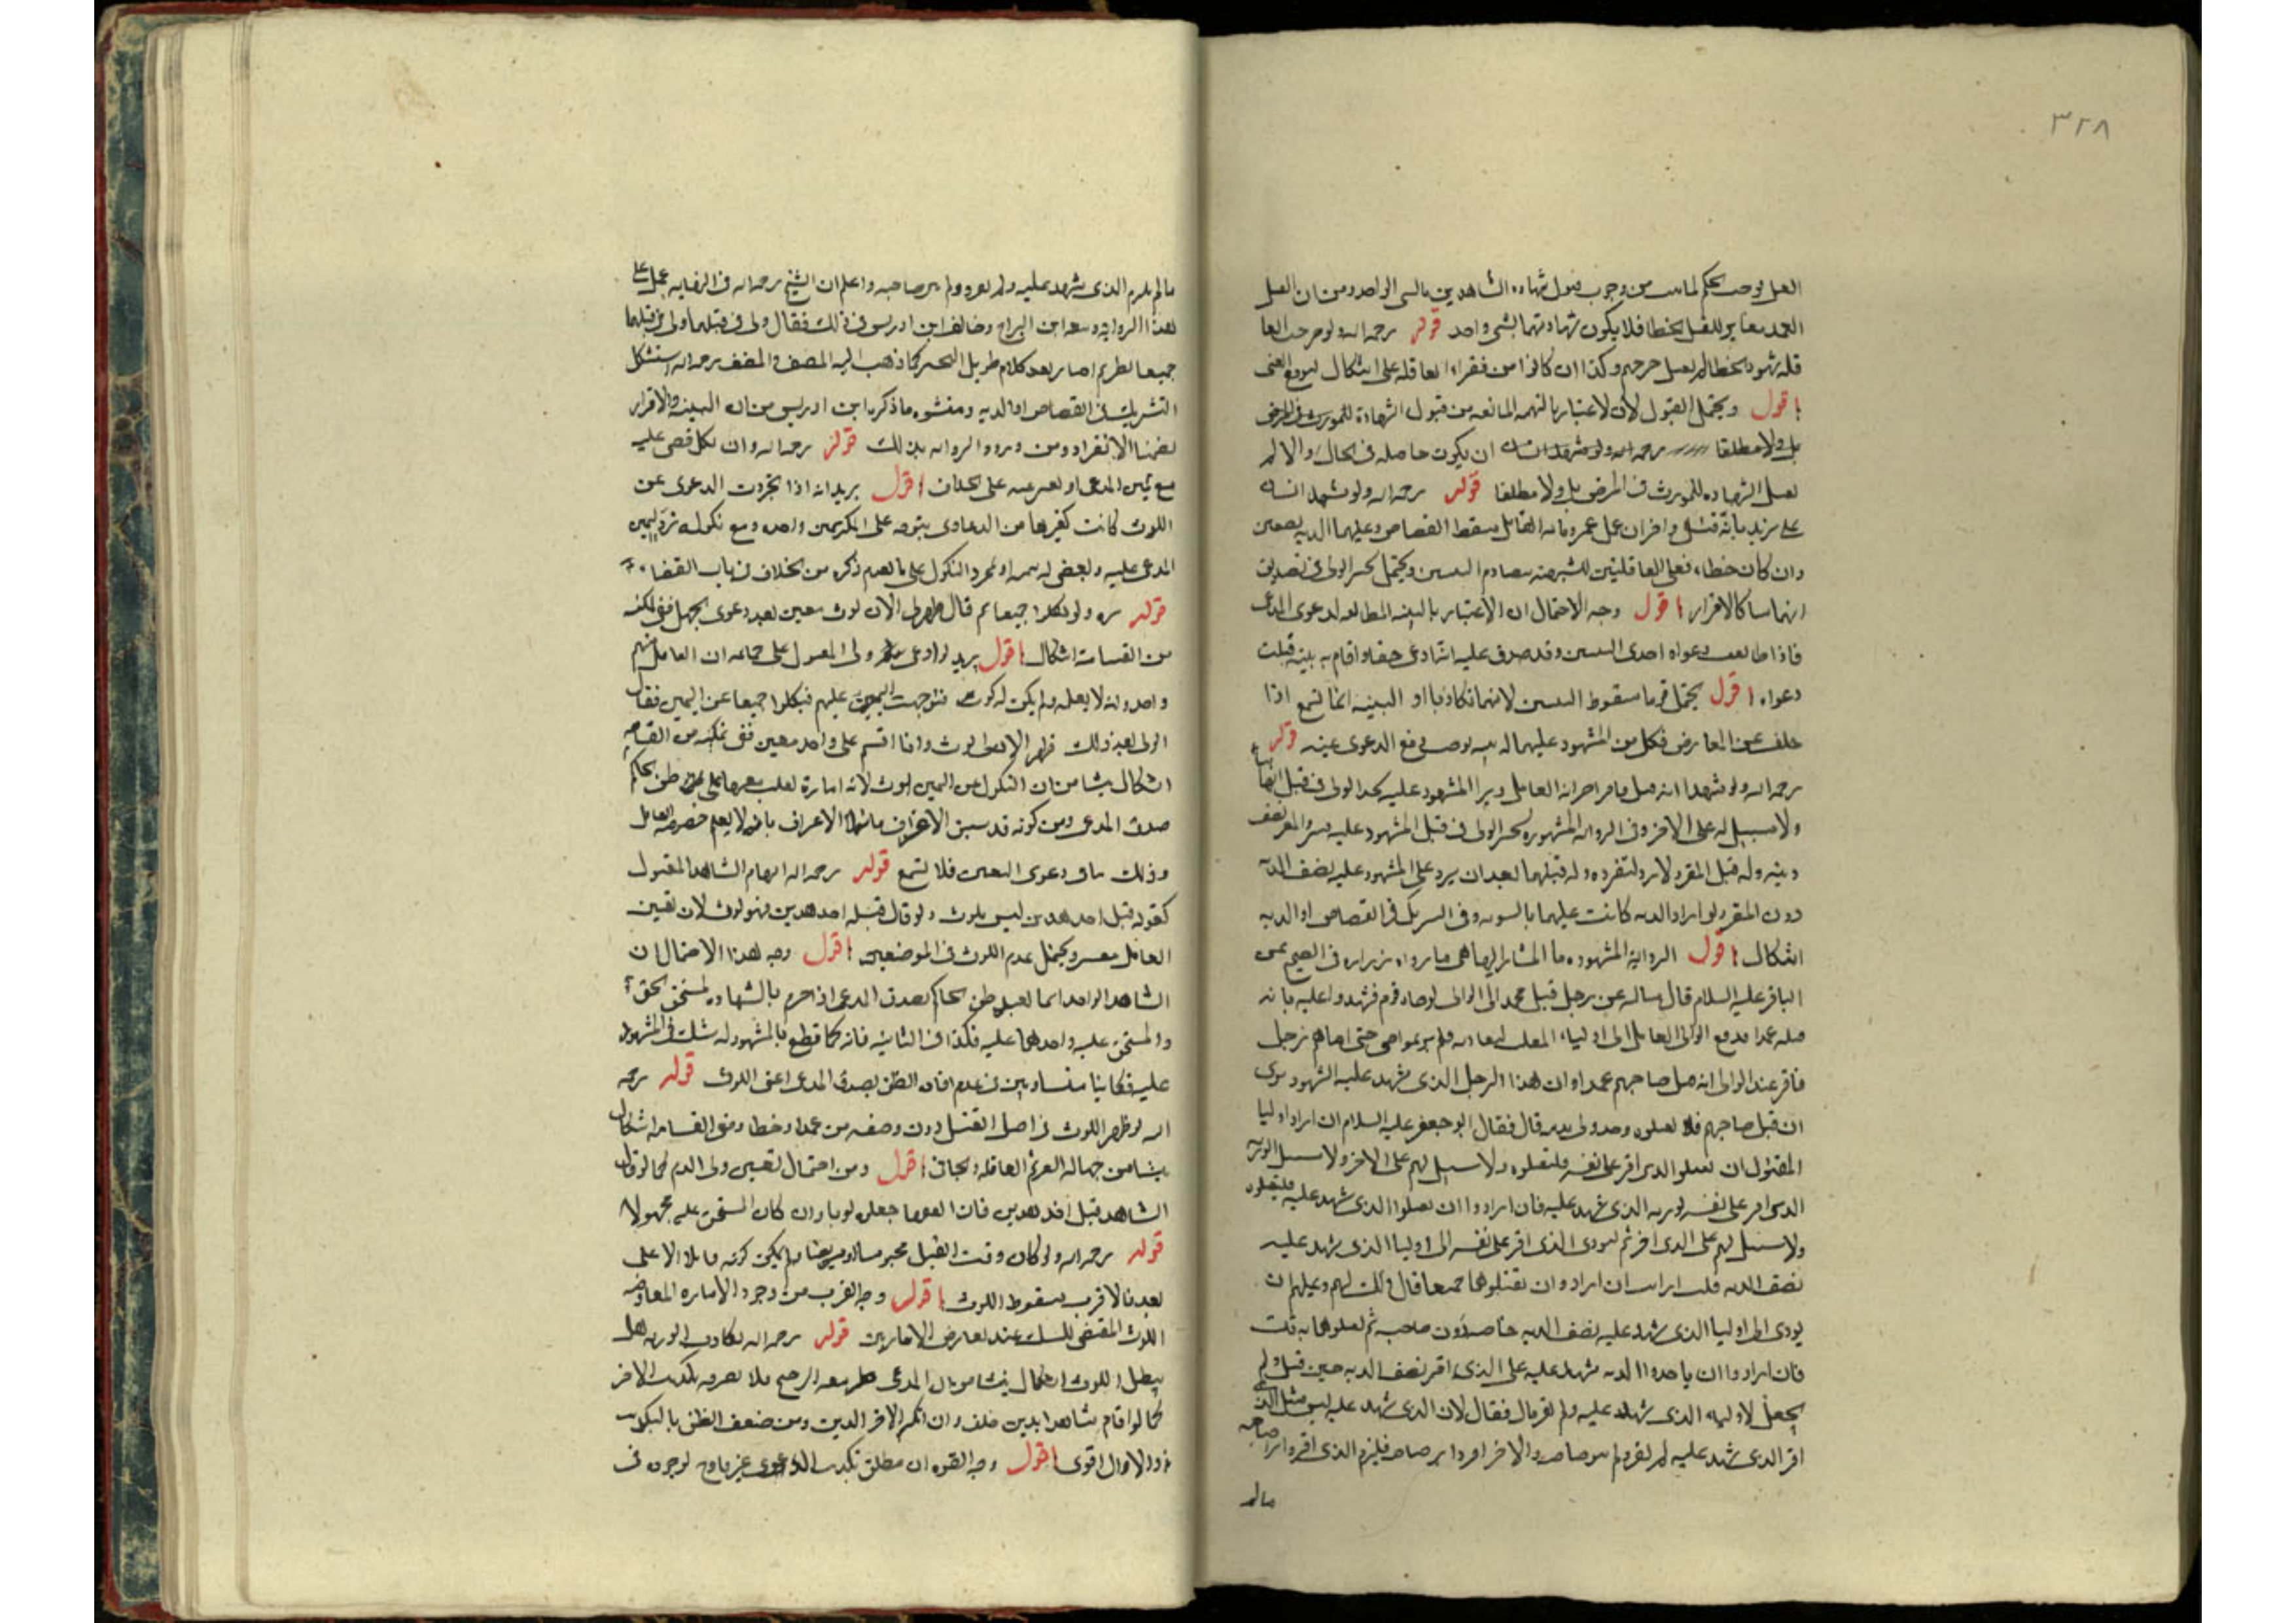 ٣٢٨
القتل يوجب الحكم لما من وجوب قبول شهادة الشاهدين بالشي الواحد ومن ان القتل
العمد مغاير للقتل الخطا فلا يكون شهادتهما بشي واحد قوله رحمه الله ولو جرح العا
قله شهود الخطا لم يقبل جرحهم وكذا ان كانوا من فقراء العاقله على اشكال لتوقع الغنى
اقول ويحتمل القبول لان الاعتبار بالتهمه المانعه من قبول الشهادة للمورث في المرض
بل ولا مطلقا رحمه الله ولو شهد انسان ان يكون حاصله في الحال والا لم
تقبل الشهاده للمورث في المرض بل ولا مطلقا قوله رحمه الله ولو شهد انسان
على زيد بانه قتل واخران على عمرو بانه القاتل سقط القصاص وعليهما الديه نصفين
وان كان خطاء فعلى العاقلتين للشبهة بتصادم البينتين ويحتمل تخير الولي في تصديق
ايهما شا كالاقرار اقول وجه الاحتمال ان الاعتبار بالبينه المطابقه لدعوى المدعي
فاذا طابقت دعواه احدى البينتين وقد صدق عليه انه ادعى حقا واقام به بينه قبلت
دعواه اقول يحتمل قويا سقوط البينتين لانهما تكاذبا او البينه انما تسمع اذا
خلت عن المعارض فكل من المشهود عليهما له بينه توجب دفع الدعوى عنه قوله
رحمه الله ولو شهدا انه قتل فاقر اخر انه القاتل وبرا المشهود عليه تخير الولي في قتل ايهما شا
ولا سبيل له على الاخر وفي الروايه المشهوره تخير الولي في قتل المشهود عليه ويرد المقر نصف
ديته وله قتل المقر ولا رد لتفرده وله قتلهما بعد ان يرد على المشهود عليه نصف الديه
دون المقر ولو اراد الديه كانت عليهما بالسويه وفي التشريك في القصاص او الديه
اشكال اقول الرواية المشهوره المشار اليها هي ما رواه زراره في الصحيح عن
الباقر عليه السلام قال سالته عن رجل قتل فحمل الى الوالي وجاء قوم فشهدوا عليه بانه
قتله عمدا فدفع الوالي القاتل الى اولياء المقتول ليقاد به فلم يريموا حتى اتاهم رجل
فاقر عند الوالي انه قتل صاحبهم عمدا وان هذا الرجل الذي شهد عليه الشهود بري
ان قتل صاحبهم فلا تقتلوه وخذوني بدمه قال فقال ابو جعفر عليه السلام ان اراد اوليا
المقتول ان يقتلوا الذي اقر على نفسه فليقتلوه ولا سبيل لهم على الاخر ولا سبيل لورثه
الذي اقر على نفسه لورثه الذي شهد عليه فان ارادوا ان يقتلوا الذي شهد عليه فليقتلوه
ولا سبيل لهم على الذي اقر ثم ليودي الذي اقر على نفسه الى اوليا الذي شهد عليه
نصف الديه قلت ارايت ان ارادوا ان يقتلوهما جميعا قال ذلك لهم وعليهم ان
يودوا الى اوليا الذي شهد عليه نصف الديه خاصه دون صاحبه ثم يقتلوهما به قلت
فان ارادوا ان ياخذوا الديه
الذي شهد عليه ولم يقر قال فقال لان الذي شهد عليه ليس مثل الذي
اقر الذي شهد عليه لم يقر ولم يبر صاحبه والاخر اقر وابر صاحبه فيلزم الذي اقر وابرا صاحبه
مالم
مالم يلزم الذي شهد عليه ولم يقر ولم يبر صاحبه واعلم ان الشيخ رحمه الله في النهايه عمل على
هذه الروايه وتبعه ابن البراج وخالف ابن ادريس في ذلك فقال ولي في قتلهما
جميعا نظر كما ذهب اليه المصنف والمصنف رحمه الله استشكل
التشريك في القصاص او الديه ومنشوه ما ذكره ابن ادريس من ان البينه والاقرار
تضمنا الانفراد ومن ورود الروايه بذلك قوله رحمه الله وان نكل قضي عليه
مع يمين المدعي او بغير يمينه على الخلاف اقول يريد انه اذا تجردت الدعوى عن
اللوث كانت كغيرها من الدعاوى يتوجه على المنكر يمين واحده ومع نكوله ترد اليمين
المدعى عليه ويقضى له بيمينه او بمجرد النكول على ما تقدم ذكره من الخلاف في باب القضاء
قوله ره ولو نكلوا جميعا ثم قال ظهر لي الان لوث معين بعد دعوى الجهل ففي تمكينه
من القسامة اشكال اقول يريد لو ادعى ولي المقتول على جماعه ان القاتل منهم
واحد وانه لا يعلمه ولم يكن له لوث فتوجهت اليمين عليهم فنكلوا جميعا عن اليمين فقال
الولي بعد ذلك ظهر الان لي لوث وانا اقسم على واحد معين ففي تمكينه من القسامه
اشكال ينشا من ان النكول عن اليمين لوث لانه امارة تغلب معها على ظن الحاكم
صدق المدعي ومن كونه قد سبق الاعتراف بانه لا يعلم خصوصيه القاتل
وذلك ينافي دعوى التعيين فلا تسمع قوله رحمه الله ابهام الشاهد المقتول
كقوله قتل احد هذين ليس بلوث ولو قال قتله احد هذين فهو لوث لان تعيين
القاتل معسر ويحتمل عدم اللوث في الموضعين اقول وجه هذا الاحتمال ان
الشاهد الواحد انما يفيد ظن الحاكم بصدق المدعي اذا جزم بالشهاده لمستحق الحق
والمستحق عليه واحدهما عليه فكذا في الثانيه فانه كما قطع بالمشهود له شك في المشهود
عليه فكانا متساويين في عدم افاده الظن بصدق المدعي اعني اللوث قوله رحمه
الله لو ظهر اللوث في اصل القتل دون وصفه من عمد او خطا ففي القسامه اشكال
ينشا من جهاله الغريم العاقله والجاني اقول ومن احتمال تعيين ولي الدم كما لو قال
الشاهد قتل احد هذين فان الفقها جعلوه لوثا وان كان المستحق عليه مجهولا
قوله رحمه الله ولو كان وقت القتل محبوسا او مريضا ولم يكن كونه قاتلا الا على
بعد فالاقرب سقوط اللوث اقول وجه القرب من وجود الاماره المعارضه
اللوث المقتضي للشك عند تعارض الامارتين قوله رحمه الله تكاذب الورثه هل
يبطل اللوث اشكال ينشا من ان المدعي ظهر معه الترجيح فلا يضره تكذيب الاخر
كما لو اقام شاهدا بدين حلف وان انكر الاخر الدين ومن ضعف الظن بالتكذيب
والاول اقوى اقول وجه القوه ان مطلق تكذيب الدعوى غير مانع لوجوه في